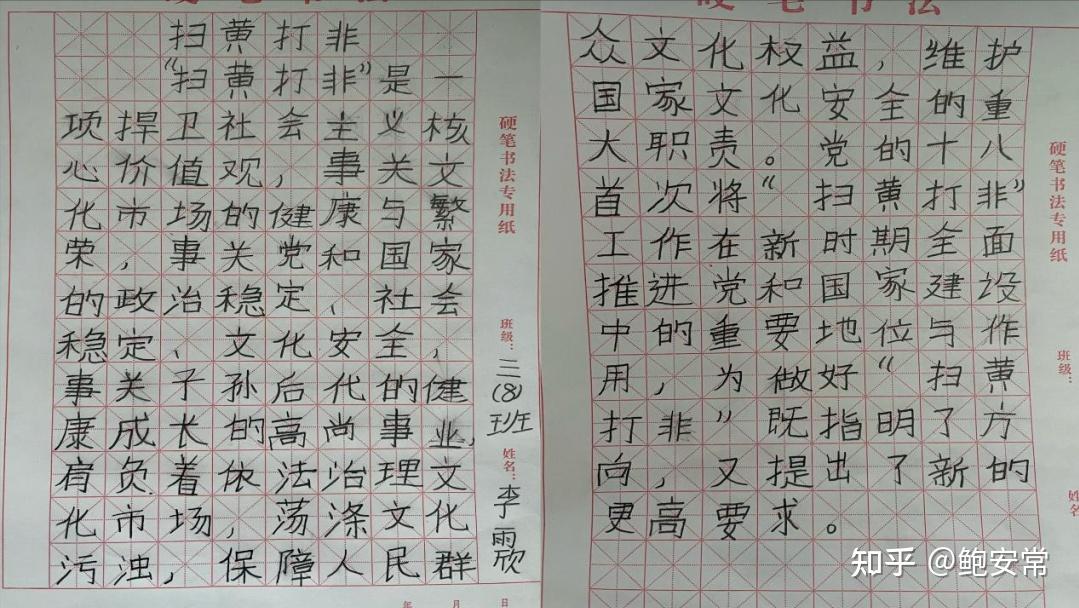 扫黄打非
“扫黄打非”是一
项捍卫社会主义核
心价值观，事关文
化市场的健康与繁
荣，事关党和国家
的政治稳定、社会
稳定、文化安全，
事关子孙后代的健
康成长的高尚事业，
肩负着依法治理文
化市场，荡涤文化
污浊，保障人民群
硬笔书法专用纸
班级：三(8)班
姓名：李雨欣
年 月 日
众文化权益，维护
国家文化安全的重
大职责。党的十八
首次将“扫黄打非”
工作在新时期全面
推进党和国家建设
中的重要地位与作
用，为做好“扫黄
打非”既指明了方
向，又提出了新的
更高要求。
硬笔书法专用纸
班级：
姓名
知乎 @鲍安常